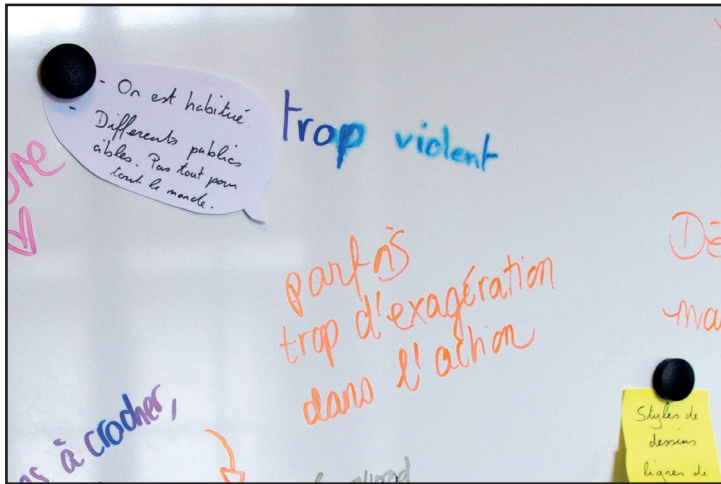 - On est habitué.
- Differents publics
cibles. Pas tout pour
tout le monde.
trop violent
parfois
trop d'exagération
dans l'action
à crocher,
Styles de
dessins
lignes de